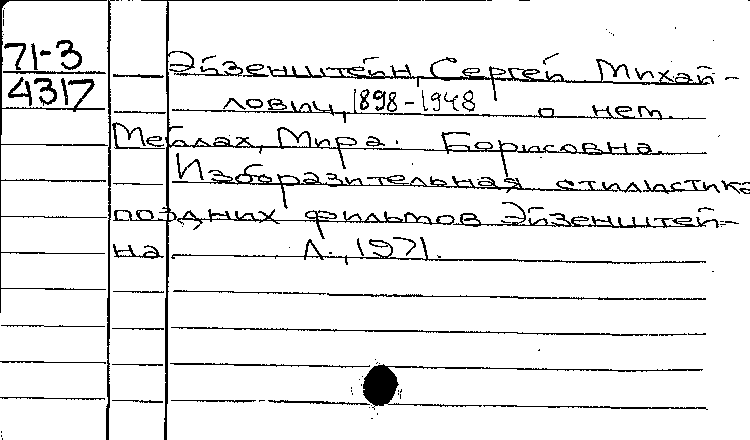 71-3
4317
Эйзенштейн, Сергей Михай-
лович, 1898-1948 о нем.
Мейлах, Мира Борисовна.
Изобразительная стилистика
поздних фильмов Эйзенштей-
на. Л., 1971.